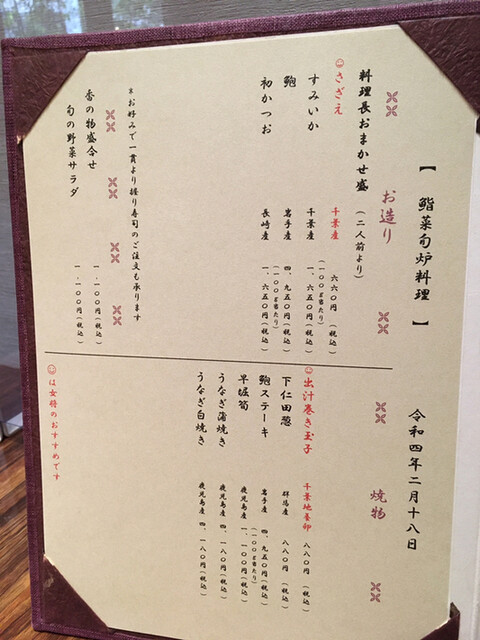 【 鮨菜旬炉料理 】
令和四年二月十八日
お造り
料理長おまかせ盛 (二人前より)
☺さざえ 千葉産 六六〇円 (税込)
(一〇〇g当たり)
すみいか 千葉産 一、六五〇円(税込)
鮑 岩手産 四、九五〇円(税込)
(一〇〇g当たり)
初かつお 長崎産 一、六五〇円(税込)
*お好みで一貫より握り寿司のご注文も承ります
香の物盛合せ 一、一〇〇円(税込)
旬の野菜サラダ 一、一〇〇円(税込)
焼物
☺出汁巻き玉子 千葉地養卵 八八〇円 (税込)
下仁田葱 群馬産 八八〇円 (税込)
鮑ステーキ 岩手産 四、九五〇円(税込)
(一〇〇g当たり)
早堀筍 鹿児島産 一、一〇〇円(税込)
うなぎ蒲焼き 鹿児島産 四、一八〇円(税込)
うなぎ白焼き 鹿児島産 四、一八〇円(税込)
☺は女将のおすすめです